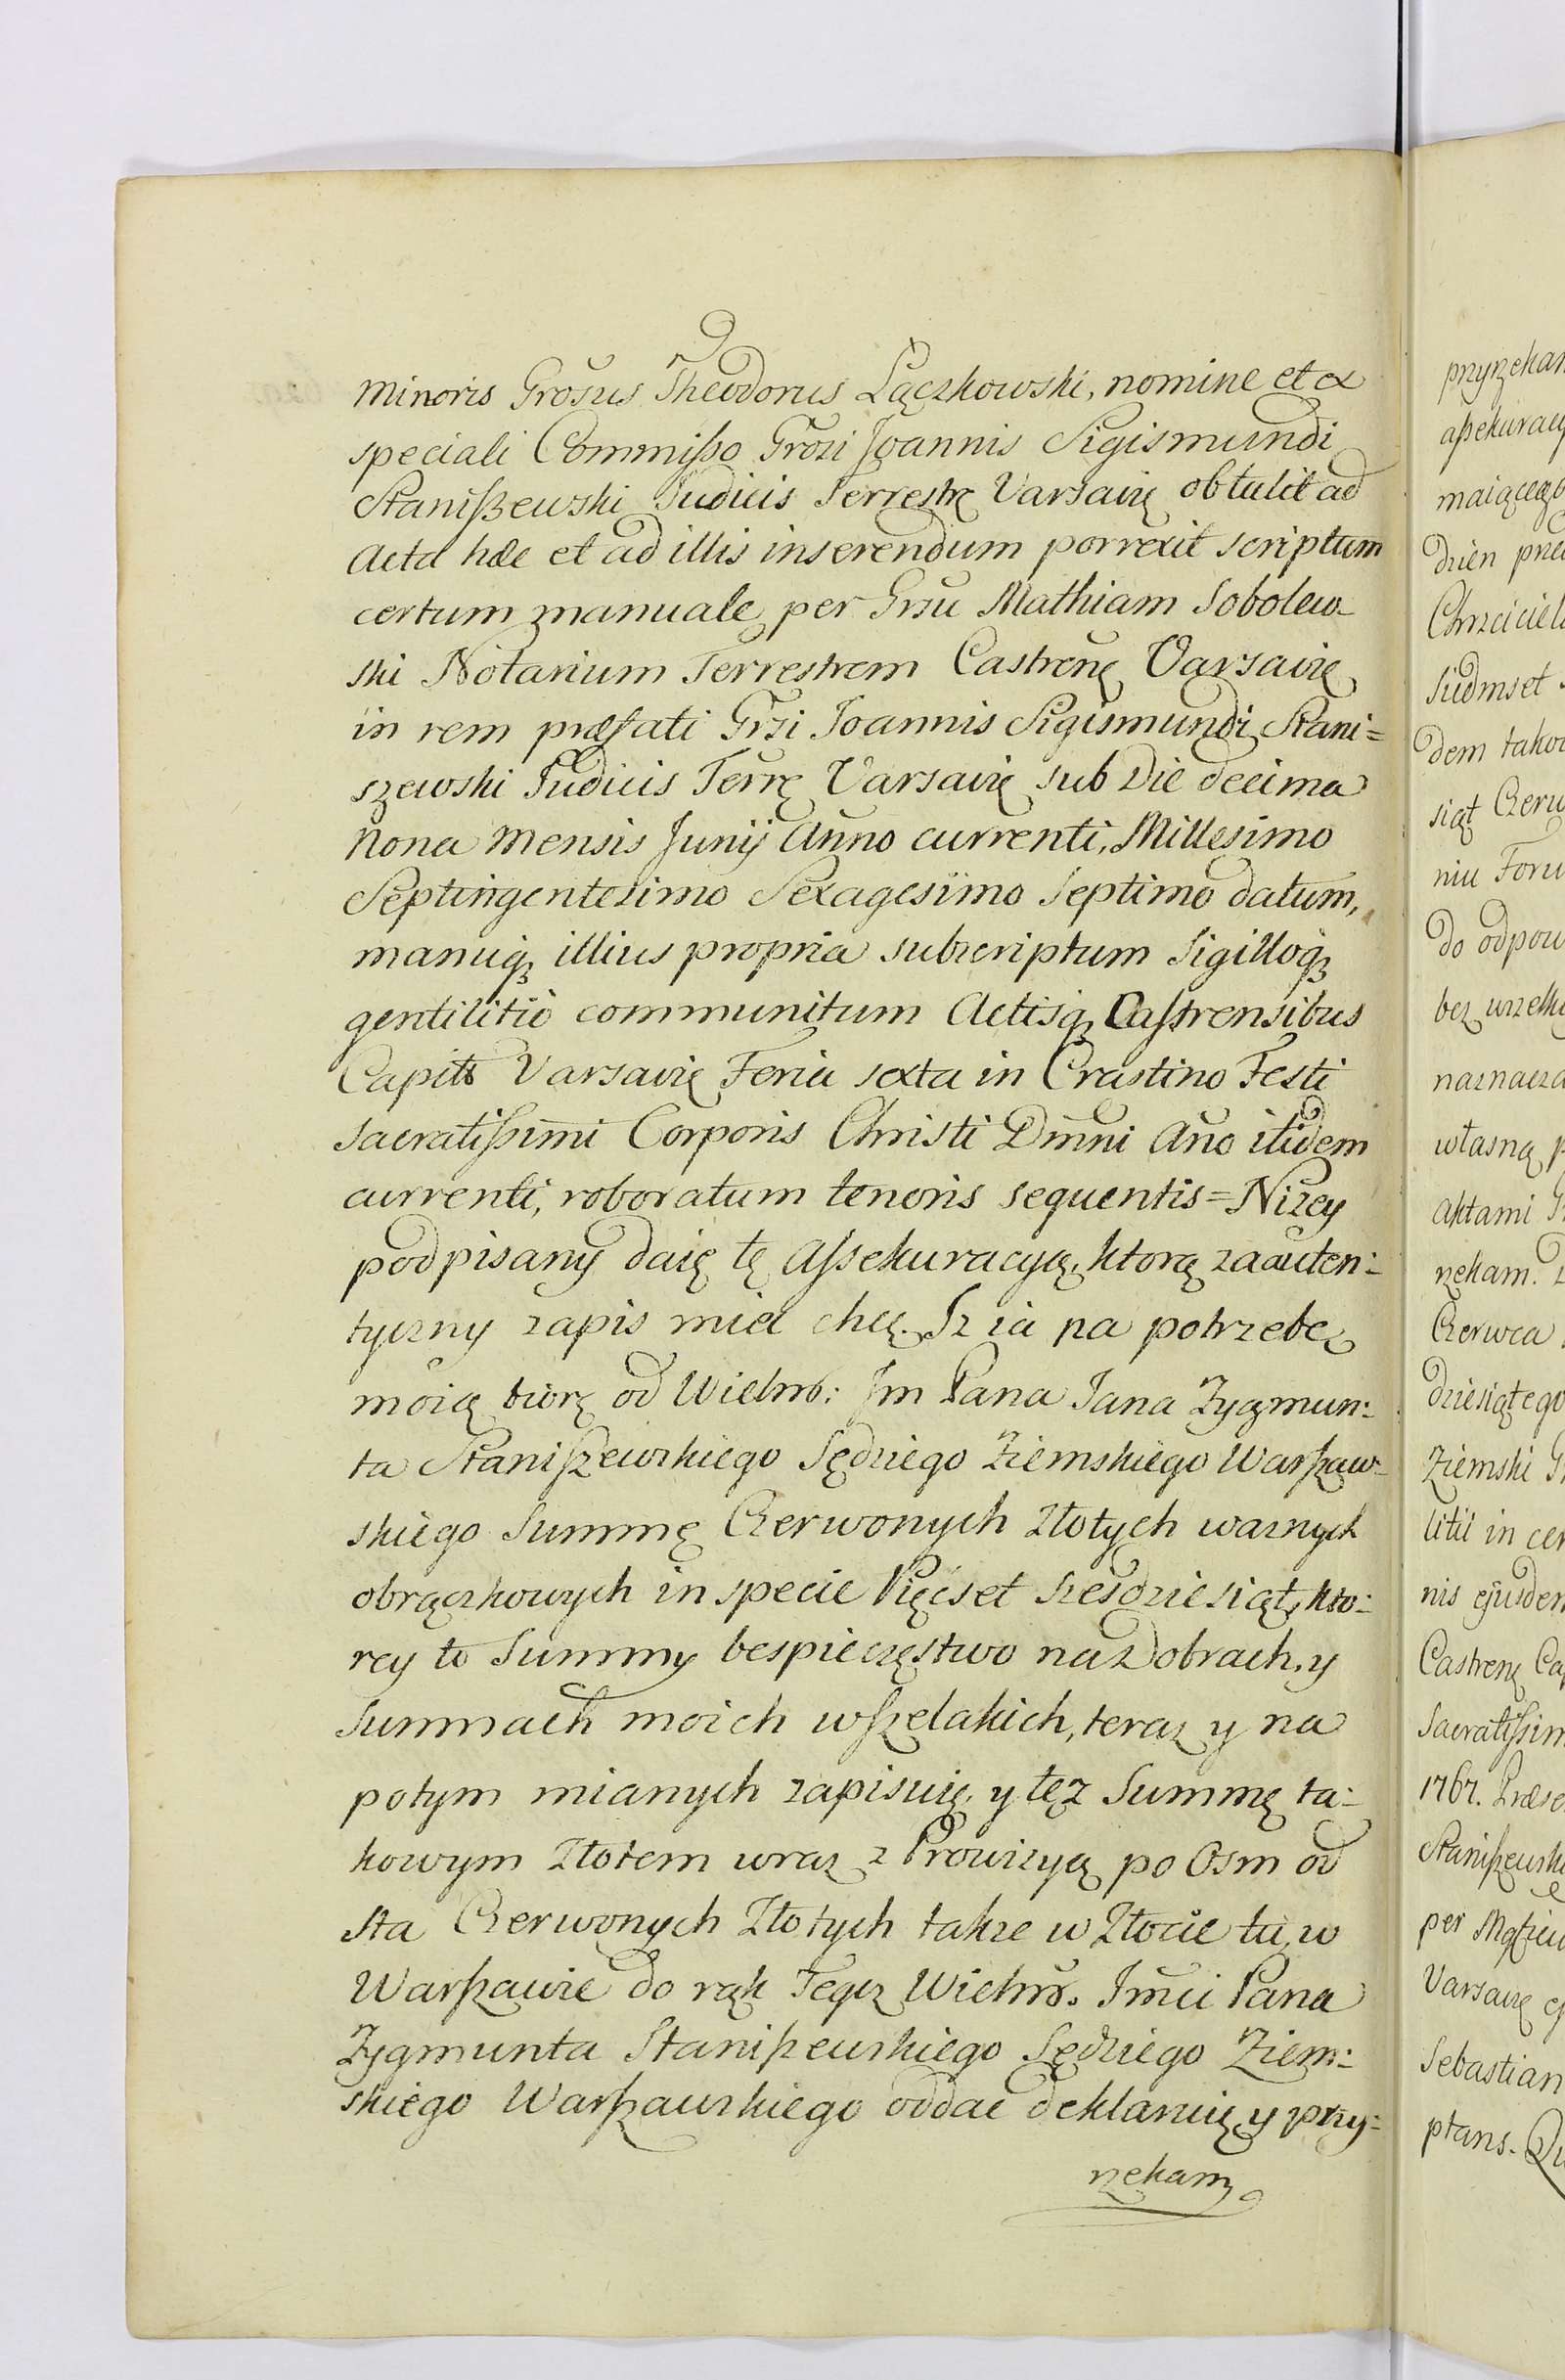 minoris Grosus Theodorus Łączkowski, nomine et ex
speciali Commißo Grosi Joannis Sigismundi
Stanißewski Judicis Terrestrę Varsavię obtulit ad
Acta hæc et ad illis inserendum porrexit scriptum
certum manuale per Grsu Mathiam Sobolew-
ski Notarium Terrestrem Castrenę Varsavię
in rem præfati Grsi Joannis Sigismundi Stani=
szewski Judicis Terrę Varsavię sub Die decima
Nona Mensis Junÿ Anno currenti, Millesimo
Septingentesimo Sexagesimo Septimo datum,
manuq₃ illius propria subscriptum Sigilloq₃
gentilitio communitum Actisq₃ Castrensibus
Capitł Varsavię Feria sexta in Crastino Festi
Sacratißimi Corporis Christi Dmni Ano itidem
currenti, roboratum tenoris sequentis = Nizey
podpisany daię tę Assekuracyą, ktorą za auten:
tyczny zapis mieć chcę. Iz ia na potrzebę
moię biorę od Wielmo: Jm Pana Jana Zygmun:
ta Stanißewskiego Sędziego Ziemskiego Warßaw-
skiego Summę Czerwonych Złotych waznych
obrączkowych in specie Pięcset szesdziesiąt, kto:
rey to Summy bespieczęstwo na Dobrach, y
Summach moich wßelakich, teraz y na
potym mianych zapisuię, y tęz Summę ta:
kowym Złotem wraz z Prowizyą po Osm od
sta Czerwonych Złotych takze w Złocie tu, w
Warßawie do rąk Tegoz Wielmo. Jmci Pana
Zygmunta Stanißewskiego Sędziego Ziem:
skiego Warßawskiego oddać deklaruię y przy:
rzekam
przyrzekam
aßekuracy
maiącego
dzien prze
Chrzciciel
siedmset
dem takow
siąt Czerw
niu Foru
do odpow
bez wszelki
naznacza
własną p
Aktami
rzekam.
Czerwca
dziesiątego
Ziemski
litii in cer
nis ejusdem
Castrenę Cap
Sacratißim
1767. Præse
Stanißewski
per
Varsavię
Sebastian
ptans. Qu